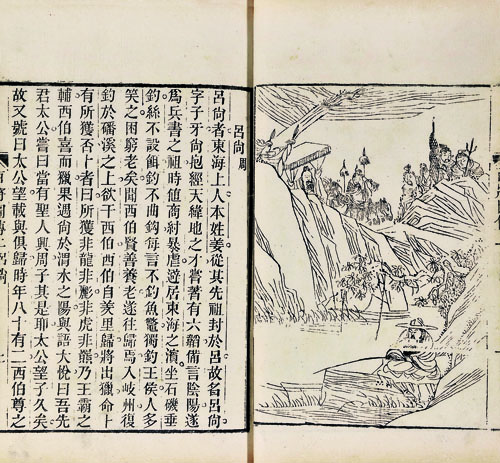 呂尚 周
呂尙者東海上人本姓姜從其先祖封於呂故名呂尙
字子牙尙抱經天緯地之才嘗著有六韜備言陰陽遂
爲兵書之祖時値商紂暴虐遊居東海之濱坐石磯垂
釣絲不設餌釣不曲鈎每言不釣魚鼈獨釣王侯人多
笑之困窮老矣聞西伯賢善養老遂往歸焉入岐州復
釣於磻溪之上欲干西伯西伯自羑里歸將出獵命卜
有所獲否卜者曰所獲非龍非彲非虎非羆乃王霸之
輔西伯喜而獵果遇尙於渭水之陽與語大悅曰吾先
君太公嘗曰當有聖人興周子其是耶太公望子久矣
故又號曰太公望載與俱歸時年八十有二西伯尊之